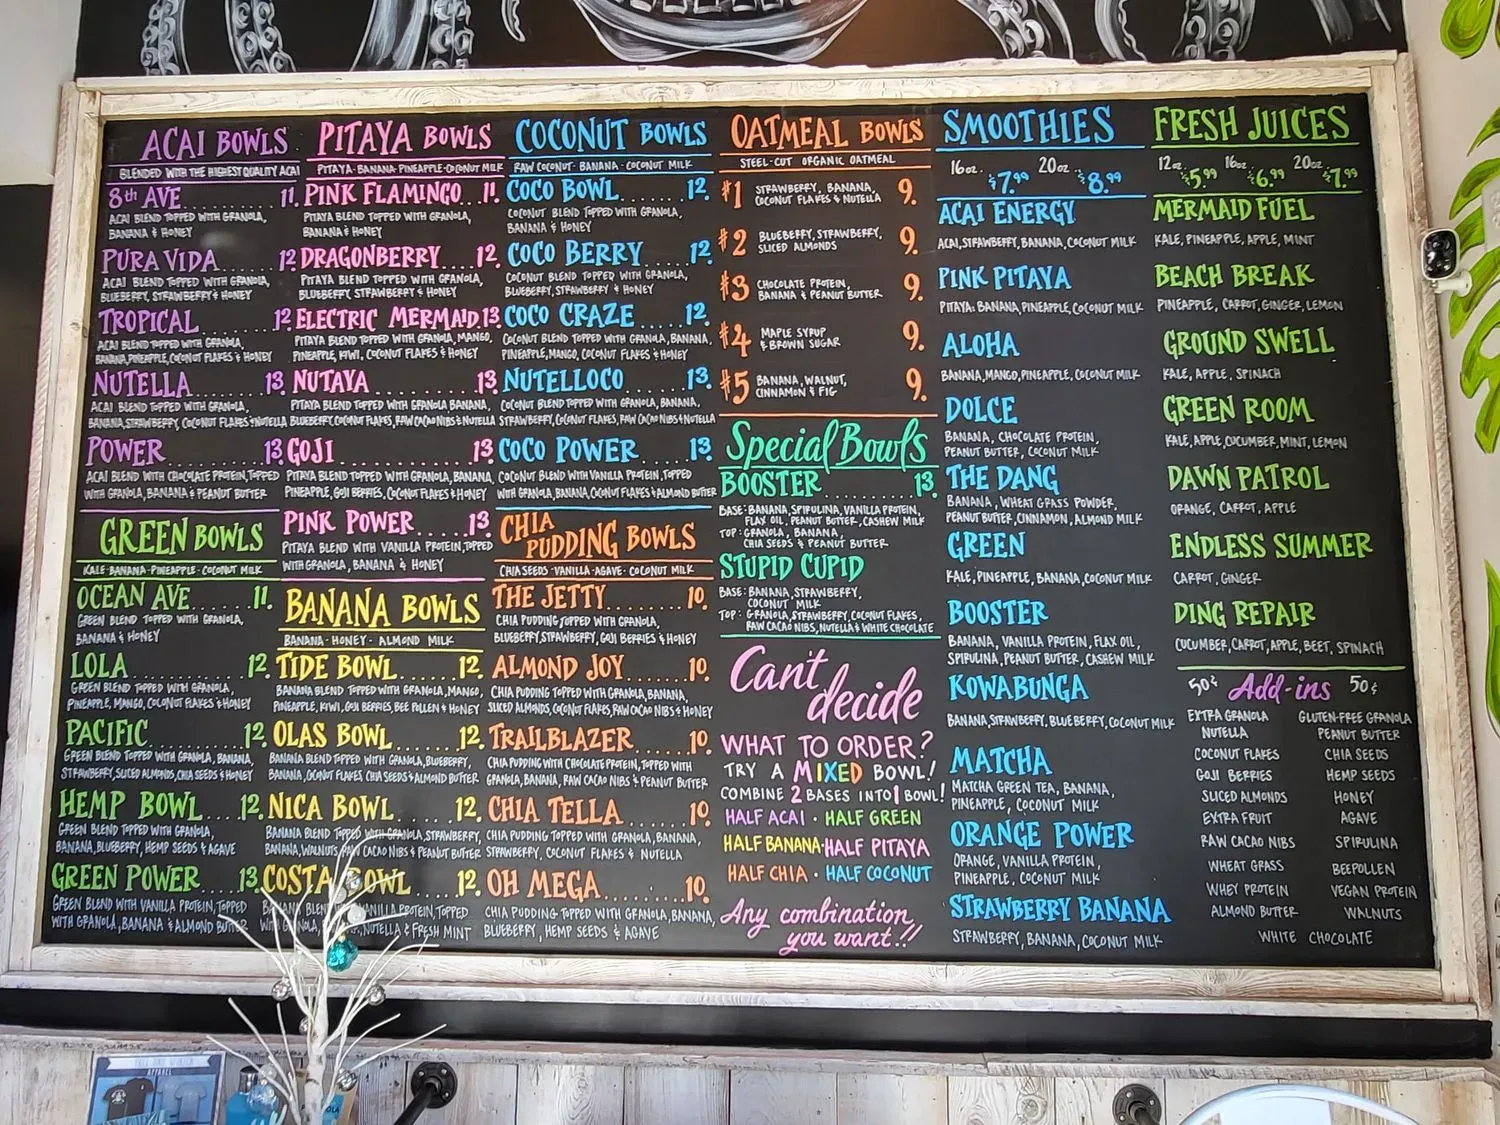 ACAI BOWLS
BLENDED WITH THE HIGHEST QUALITY ACAI
8th AVE 11.
ACAI BLEND TOPPED WITH GRANOLA,
BANANA & HONEY
PURA VIDA 12.
ACAI BLEND TOPPED WITH GRANOLA,
BLUEBERRY, STRAWBERRY & HONEY
TROPICAL 12.
ACAI BLEND TOPPED WITH GRANOLA,
BANANA, PINEAPPLE, COCONUT FLAKES & HONEY
NUTELLA 13.
ACAI BLEND TOPPED WITH GRANOLA,
BANANA, STRAWBERRY, COCONUT FLAKES & NUTELLA
POWER 13.
ACAI BLEND WITH CHOCOLATE PROTEIN, TOPPED
WITH GRANOLA, BANANA & PEANUT BUTTER
GREEN BOWLS
KALE · BANANA · PINEAPPLE · COCONUT MILK
OCEAN AVE 11.
GREEN BLEND TOPPED WITH GRANOLA,
BANANA & HONEY
LOLA 12.
GREEN BLEND TOPPED WITH GRANOLA,
PINEAPPLE, MANGO, COCONUT FLAKES & HONEY
PACIFIC 12.
GREEN BLEND TOPPED WITH GRANOLA, BANANA,
STRAWBERRY, SLICED ALMONDS, CHIA SEEDS & HONEY
HEMP BOWL 12.
GREEN BLEND TOPPED WITH GRANOLA,
BANANA, BLUEBERRY, HEMP SEEDS & AGAVE
GREEN POWER 13.
GREEN BLEND WITH VANILLA PROTEIN, TOPPED
WITH GRANOLA, BANANA & ALMOND BUTTER
PITAYA BOWLS
PITAYA · BANANA · PINEAPPLE · COCONUT MILK
PINK FLAMINGO 11.
PITAYA BLEND TOPPED WITH GRANOLA,
BANANA & HONEY
DRAGONBERRY 12.
PITAYA BLEND TOPPED WITH GRANOLA,
BLUEBERRY, STRAWBERRY & HONEY
ELECTRIC MERMAID 13.
PITAYA BLEND TOPPED WITH GRANOLA, MANGO,
PINEAPPLE, KIWI, COCONUT FLAKES & HONEY
NUTAYA 13.
PITAYA BLEND TOPPED WITH GRANOLA BANANA,
BLUEBERRY, COCONUT FLAKES, RAW CACAO NIBS & NUTELLA
GOJI 13.
PITAYA BLEND TOPPED WITH GRANOLA, BANANA,
PINEAPPLE, GOJI BERRIES, COCONUT FLAKES & HONEY
PINK POWER 13.
PITAYA BLEND WITH VANILLA PROTEIN, TOPPED
WITH GRANOLA, BANANA & HONEY
BANANA BOWLS
BANANA · HONEY · ALMOND MILK
TIDE BOWL 12.
BANANA BLEND TOPPED WITH GRANOLA, MANGO,
PINEAPPLE, KIWI, GOJI BERRIES, BEE POLLEN & HONEY
OLAS BOWL 12.
BANANA BLEND TOPPED WITH GRANOLA, BLUEBERRY,
BANANA, COCONUT FLAKES CHIA SEEDS & ALMOND BUTTER
NICA BOWL 12.
BANANA BLEND TOPPED WITH GRANOLA, STRAWBERRY,
BANANA, WALNUTS, RAW CACAO NIBS & PEANUT BUTTER
COSTA BOWL 12.
BANANA BLEND WITH VANILLA PROTEIN, TOPPED
WITH GRANOLA, NUTELLA & FRESH MINT
COCONUT BOWLS
RAW COCONUT · BANANA · COCONUT MILK
COCO BOWL 12.
COCONUT BLEND TOPPED WITH GRANOLA,
BANANA & HONEY
COCO BERRY 12.
COCONUT BLEND TOPPED WITH GRANOLA,
BLUEBERRY, STRAWBERRY & HONEY
COCO CRAZE 12.
COCONUT BLEND TOPPED WITH GRANOLA, BANANA,
PINEAPPLE, MANGO, COCONUT FLAKES & HONEY
NUTELLOCO 13.
COCONUT BLEND TOPPED WITH GRANOLA, BANANA,
STRAWBERRY, COCONUT FLAKES, RAW CACAO NIBS & NUTELLA
COCO POWER 13.
COCONUT BLEND WITH VANILLA PROTEIN, TOPPED
WITH GRANOLA, BANANA, COCONUT FLAKES & ALMOND BUTTER
CHIA
PUDDING BOWLS
CHIA SEEDS · VANILLA · AGAVE · COCONUT MILK
THE JETTY 10.
CHIA PUDDING TOPPED WITH GRANOLA,
BLUEBERRY, STRAWBERRY, GOJI BERRIES & HONEY
ALMOND JOY 10.
CHIA PUDDING TOPPED WITH GRANOLA, BANANA,
SLICED ALMONDS, COCONUT FLAKES, RAW CACAO NIBS & HONEY
TRAILBLAZER 10.
CHIA PUDDING WITH CHOCOLATE PROTEIN, TOPPED WITH
GRANOLA, BANANA, RAW CACAO NIBS & PEANUT BUTTER
CHIA TELLA 10.
CHIA PUDDING TOPPED WITH GRANOLA, BANANA,
STRAWBERRY, COCONUT FLAKES & NUTELLA
OH MEGA 10.
CHIA PUDDING TOPPED WITH GRANOLA, BANANA,
BLUEBERRY, HEMP SEEDS & AGAVE
OATMEAL BOWLS
STEEL-CUT ORGANIC OATMEAL
#1 STRAWBERRY, BANANA, 9.
COCONUT FLAKES & NUTELLA
#2 BLUEBERRY, STRAWBERRY, 9.
SLICED ALMONDS
#3 CHOCOLATE PROTEIN, 9.
BANANA & PEANUT BUTTER
#4 MAPLE SYRUP 9.
& BROWN SUGAR
#5 BANANA, WALNUT, 9.
CINNAMON & FIG
Special Bowls
BOOSTER 13.
BASE: BANANA, SPIRULINA, VANILLA PROTEIN,
FLAX OIL, PEANUT BUTTER, CASHEW MILK
TOP: GRANOLA, BANANA,
CHIA SEEDS & PEANUT BUTTER
STUPID CUPID
BASE: BANANA, STRAWBERRY,
COCONUT MILK
TOP: GRANOLA, STRAWBERRY, COCONUT FLAKES,
RAW CACAO NIBS, NUTELLA & WHITE CHOCOLATE
Can't
decide
WHAT TO ORDER?
TRY A MIXED BOWL!
COMBINE 2 BASES INTO 1 BOWL!
HALF ACAI · HALF GREEN
HALF BANANA · HALF PITAYA
HALF CHIA · HALF COCONUT
Any combination
you want!!
SMOOTHIES
16oz. $7.99 20oz. $8.99
ACAI ENERGY
ACAI, STRAWBERRY, BANANA, COCONUT MILK
PINK PITAYA
PITAYA, BANANA, PINEAPPLE, COCONUT MILK
ALOHA
BANANA, MANGO, PINEAPPLE, COCONUT MILK
DOLCE
BANANA, CHOCOLATE PROTEIN,
PEANUT BUTTER, COCONUT MILK
THE DANG
BANANA, WHEAT GRASS POWDER,
PEANUT BUTTER, CINNAMON, ALMOND MILK
GREEN
KALE, PINEAPPLE, BANANA, COCONUT MILK
BOOSTER
BANANA, VANILLA PROTEIN, FLAX OIL,
SPIRULINA, PEANUT BUTTER, CASHEW MILK
KOWABUNGA
BANANA, STRAWBERRY, BLUEBERRY, COCONUT MILK
MATCHA
MATCHA GREEN TEA, BANANA,
PINEAPPLE, COCONUT MILK
ORANGE POWER
ORANGE, VANILLA PROTEIN,
PINEAPPLE, COCONUT MILK
STRAWBERRY BANANA
STRAWBERRY, BANANA, COCONUT MILK
FRESH JUICES
12oz. $5.99 16oz. $6.99 20oz. $7.99
MERMAID FUEL
KALE, PINEAPPLE, APPLE, MINT
BEACH BREAK
PINEAPPLE, CARROT, GINGER, LEMON
GROUND SWELL
KALE, APPLE, SPINACH
GREEN ROOM
KALE, APPLE, CUCUMBER, MINT, LEMON
DAWN PATROL
ORANGE, CARROT, APPLE
ENDLESS SUMMER
CARROT, GINGER
DING REPAIR
CUCUMBER, CARROT, APPLE, BEET, SPINACH
50¢ Add-ins 50¢
EXTRA GRANOLA GLUTEN-FREE GRANOLA
NUTELLA PEANUT BUTTER
COCONUT FLAKES CHIA SEEDS
GOJI BERRIES HEMP SEEDS
SLICED ALMONDS HONEY
EXTRA FRUIT AGAVE
RAW CACAO NIBS SPIRULINA
WHEAT GRASS BEEPOLLEN
WHEY PROTEIN VEGAN PROTEIN
ALMOND BUTTER WALNUTS
WHITE CHOCOLATE
APPAREL